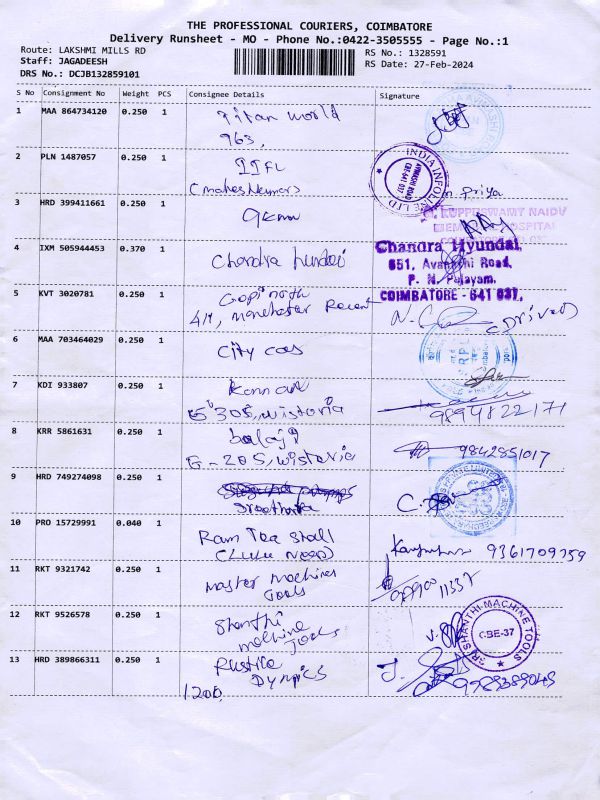 THE PROFESSIONAL COURIERS, COIMBATORE
Delivery Runsheet - MO - Phone No.:0422-3505555 - Page No.:1
Route: LAKSHMI MILLS RD
RS No.: 1328591
Staff: JAGADEESH
RS Date: 27-Feb-2024
DRS No.: DCJB132859101
S No Consignment No Weight PCS Consignee Details Signature
1 MAA 864734120 0.250 1 Titan world
963,
2 PLN 1487057 0.250 1 IIFL
INDIA INFOLINE LTD
AVINASHI ROAD
CBE-641 037
Priya
3 HRD 399411661 0.250 1 gknm
G. KUPPUSWAMY NAIDU
MEMORIAL HOSPITAL
4 IXM 505944453 0.370 1 Chandra hundai
Chandra Hyundai,
651, Avanashi Road,
P. N. Palayam,
COIMBATORE - 641 037.
5 KVT 3020781 0.250 1 Gopinath
411, manchester
6 MAA 703464029 0.250 1 City
7 KDI 933807 0.250 1
305, wistoria
9894822171
8 KRR 5861631 0.250 1 balaji
G-205, wistoria
9842851017
9 HRD 749274098 0.250 1
10 PRO 15729991 0.040 1 Ram Tea stall
9361709759
11 RKT 9321742 0.250 1 Master machines
Tools
11337
12 RKT 9526578 0.250 1 Shanthi
machine Tools
SRI SHANTHI MACHINE TOOLS
CBE-37
13 HRD 389866311 0.250 1 Rustic
Olympics
1200,
9789389045